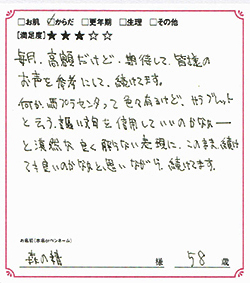 □お肌 ☑からだ □更年期 □生理 □その他
【満足度】★★★☆☆
毎月、高額だけど、期待して、皆様の
お声を参考にして、続けてます。
何か、馬プラセンタって色々有るけど、サラブレット
と云う、謳い文句を信用していいのかなぁー
と漠然な良く解らない表現に、このまま、続け
ても良いのかなぁと思いながら、続けてます。
お名前(本名orペンネーム)
森の精 様 58 歳